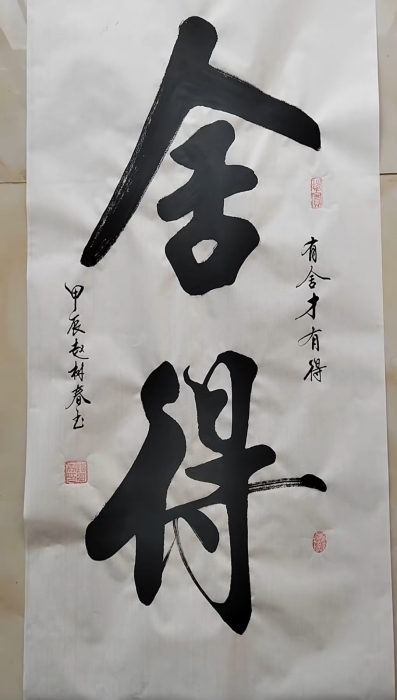 有舍才有得
舍得
甲辰赵树春书